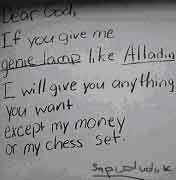 Dear God,
If you give me
genie lamp like Alladin
I will give you anything
you want
except my money
or my chess set.